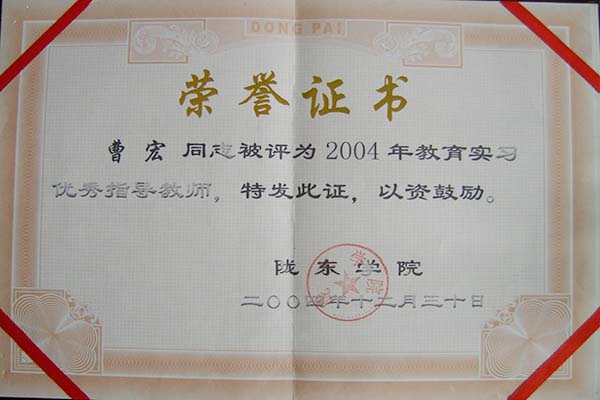 DONG PAI
荣誉证书
曹宏 同志被评为2004年教育实习
优秀指导教师，特发此证，以资鼓励。
陇东学院
二〇〇四年十二月三十日